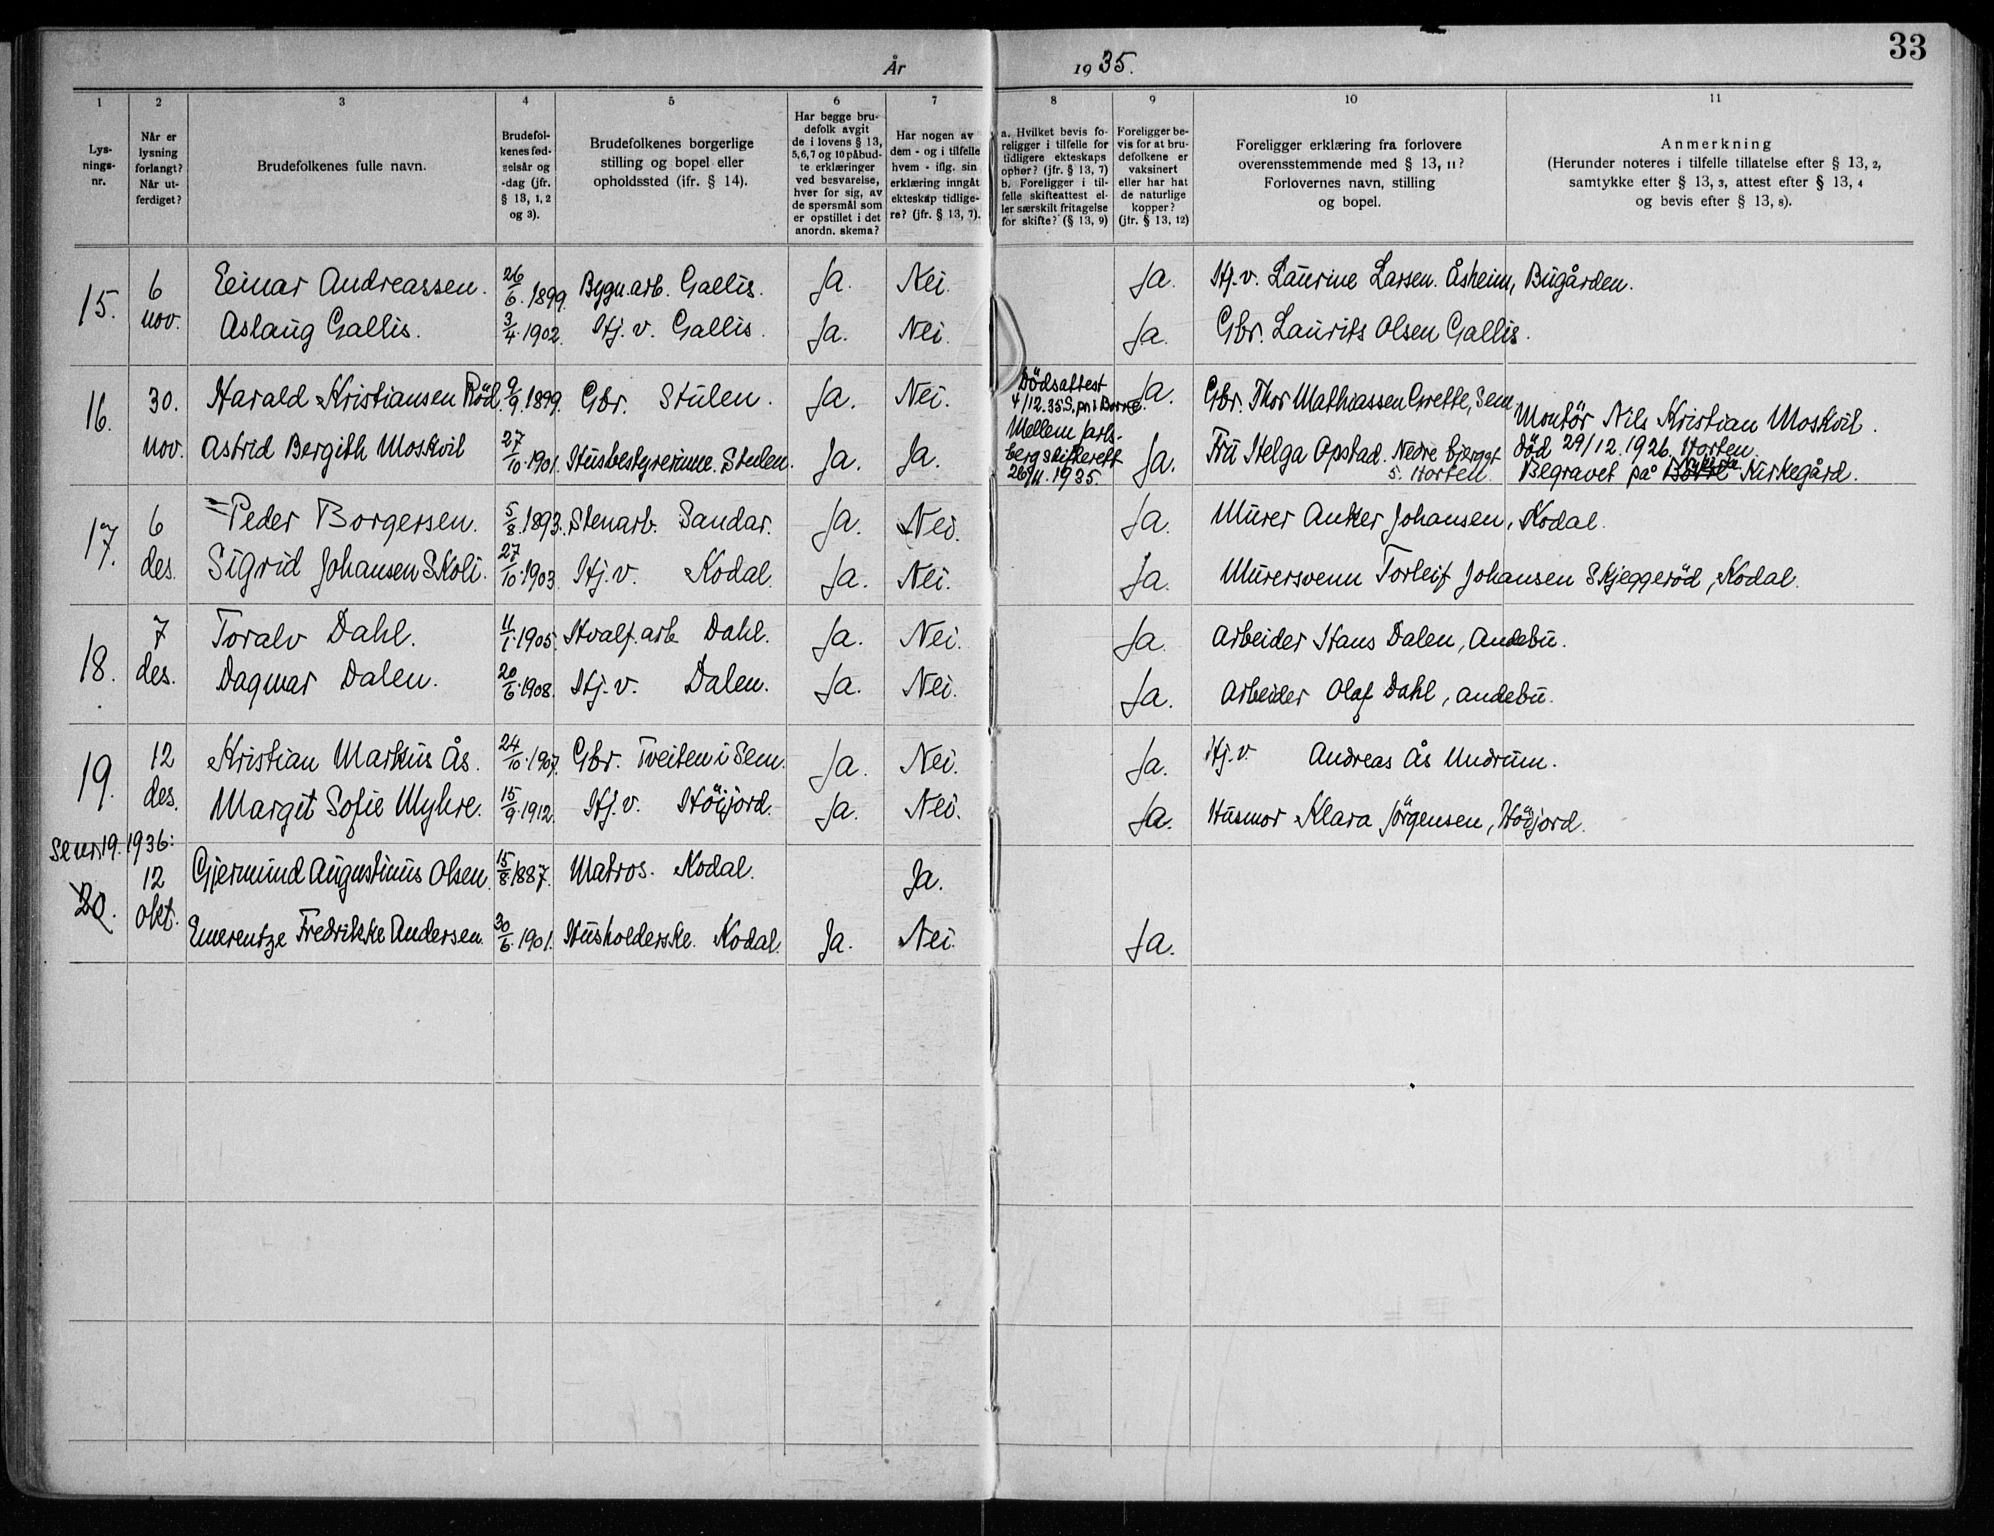 33
År 1935.
1 2 3 4 5 6 7 8 9 10 11
Lys-
nings-
nr.
Når er
lysning
forlangt?
Når ut-
ferdiget?
Brudefolkenes fulle navn.
Brudefol-
kenes fød-
selsår og
-dag (jfr.
§ 13, 1, 2
og 3).
Brudefolkenes borgerlige
stilling og bopel eller
opholdssted (ifr. § 14).
Har begge bru-
defolk avgit
de i lovens § 13,
5,6,7 og 10 påbud-
te erklæringer
ved besvarelse,
hver for sig, av
de spørsmål som
er opstillet i det
anordn. skema?
Har nogen av
dem - og i tilfelle
hvem - iflg. sin
erklæring inngåt
ekteskap tidlige-
re? (jfr. § 13, 7).
a. Hvilket bevis fo-
religger i tilfelle for
tidligere ekteskaps
ophør? (jfr. § 13, 7)
b. Foreligger i til-
felle skifteattest el-
ler særskilt fritagelse
for skifte? (§ 13, 9)
Foreligger be-
vis for at bru-
defolkene er
vaksinert
eller har hat
de naturlige
kopper?
(jfr. § 13, 12)
Foreligger erklæring fra forlovere
overensstemmende med § 13, 11?
Forlovernes navn, stilling
og bopel.
Anmerkning
(Herunder noteres i tilfelle tillatelse efter § 13, 2,
samtykke efter § 13, 3, attest efter § 13, 4
og bevis efter § 13, 8).
15. 6 nov. Einar Andreassen. 26/6.1899. Bygn.arb. Gallis. Ja. Nei. Ja. Hj.v. Laurine Larsen. Åsheim, Bugården.
Aslaug Gallis. 3/4.1902. Hj.v. Gallis. Ja. Nei. Ja. Gbr. Laurits Olsen Gallis.
16. 30. nov. Harald Kristiansen Röd. 9/9.1899. Gbr. Stulen. Ja. Nei. Dödsattest
4/12.35. S.pr. i Borre.
Ja. Gbr. Thor Mathiassen Grette, Sem
Montör Nils Kristian Moskvil.
Astrid Bergith Moskvil 27/10.1901. Husbestyrerinne. Stulen. Ja. Ja. Mellem Jarls-
berg skifterett
26/11.1935.
Ja. Fru Helga Opstad. Nedre bjerggt
5. Horten
död 29/12.1926. Horten.
Begravet på Borre Nykirke Kirkegård.
17. 6 des. Peder Borgersen. 5/8.1893. Stenarb. Sandar. Ja. Nei. Ja. Murer Anker Johansen, Kodal.
Sigrid Johansen Skoli. 27/10.1903 Hj.v. Kodal. Ja. Nei. Ja. Murersvenn Torleif Johansen Skjeggeröd, Kodal.
18. 7 des. Toralv Dahl. 11/1.1905. Hvalf.arb. Dahl. Ja. Nei. Ja. Arbeider Hans Dalen, Andebu.
Dagmar Dalen. 20/6.1908. Hj.v. Dalen. Ja. Nei. Ja. Arbeider Olaf Dahl, Andebu.
19. 12 des. Kristian Markus Ås. 24/10.1907. Gbr. Tveiten i Sem. Ja. Nei. Ja. Hj.v. Andreas Ås Undrum.
Margit Sofie Myhre. 15/9.1912. Hj.v. Höijord. Ja. Nei. Ja. Husmor Klara Jörgensen, Höijord.
Se nr 19. 1936:
20. 12 okt. Gjermund Augustinus Olsen. 15/8.1887. Matros. Kodal. Ja.
Emerentze Fredrikke Andersen. 30/6.1901. Husholderske. Kodal. Ja. Nei. Ja.